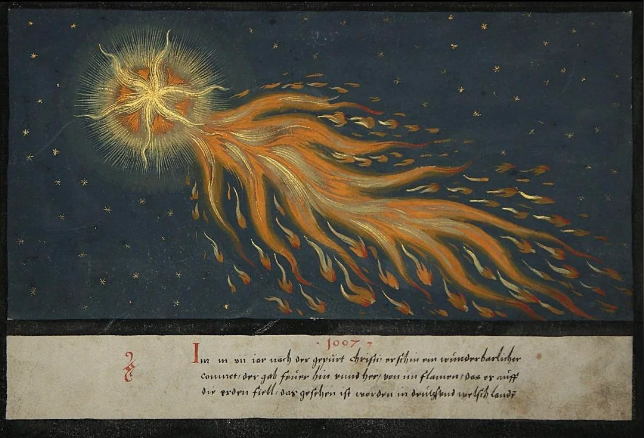 · 1007 ·
Im m vii iar nach der gepurt christi erschin ein wunderbarlicher
commet/ der gab feuer hin vnnd her/ von im flamen/ das er auff
die erden fiell/ das gesehen ist worden in vnd welsch